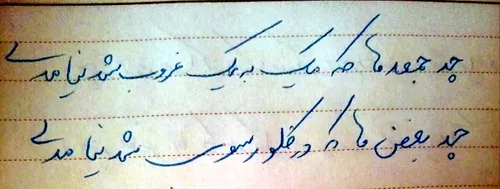 چه جمعه ها که یک به یک غروب شد نیامدی
چه بغض ها که در گلو رسوب شد نیامدی